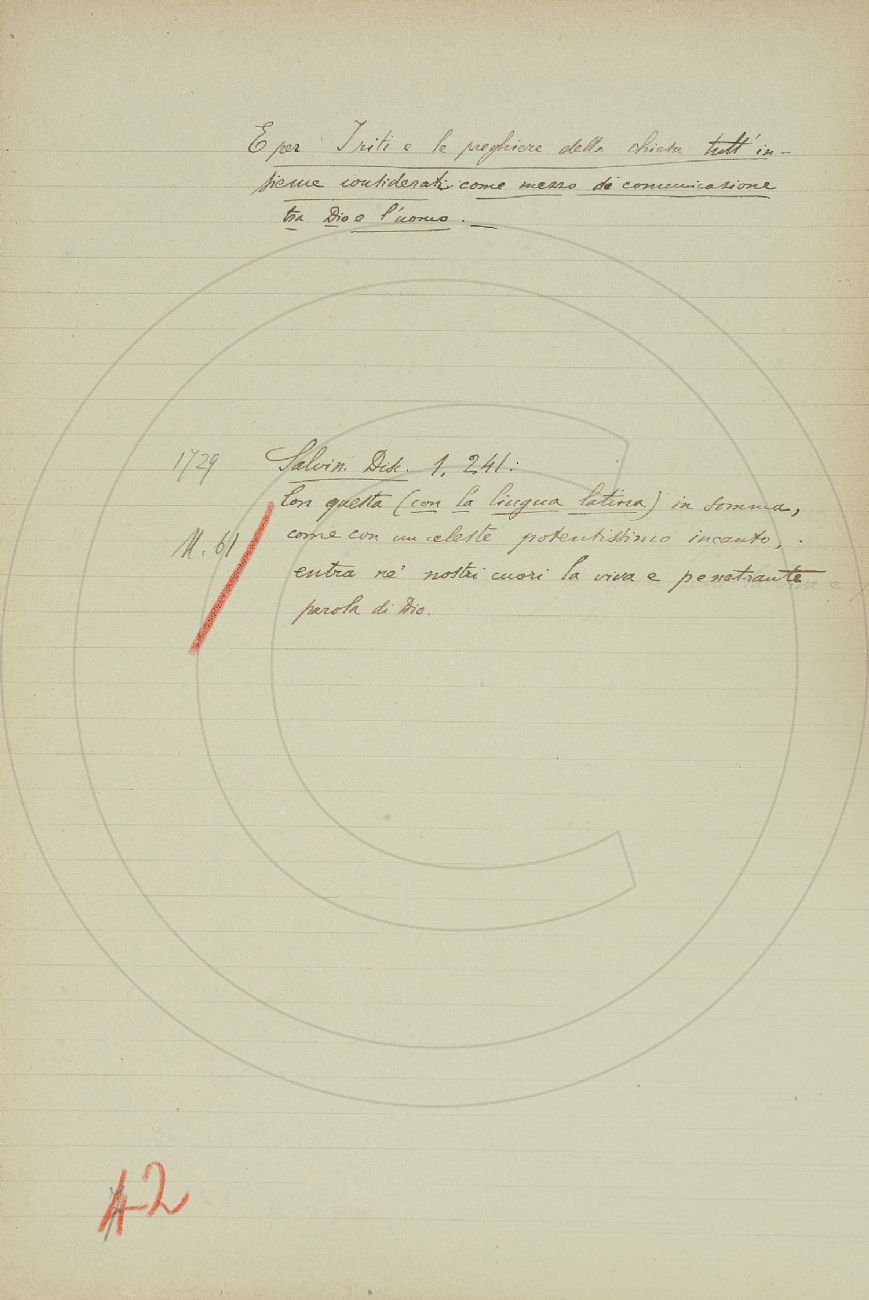 E per I riti e le preghiere della chiesa tutt'in-
sieme considerati come mezzo di comunicazione
tra Dio e l'uomo. _
1729 Salvin. Disc. 1. 241:
Con questa (con la lingua latina) in somma,
come con un celeste potentissimo incanto,
M. 61 entra ne' nostri cuori la viva e penetrante
parola di Dio.
42